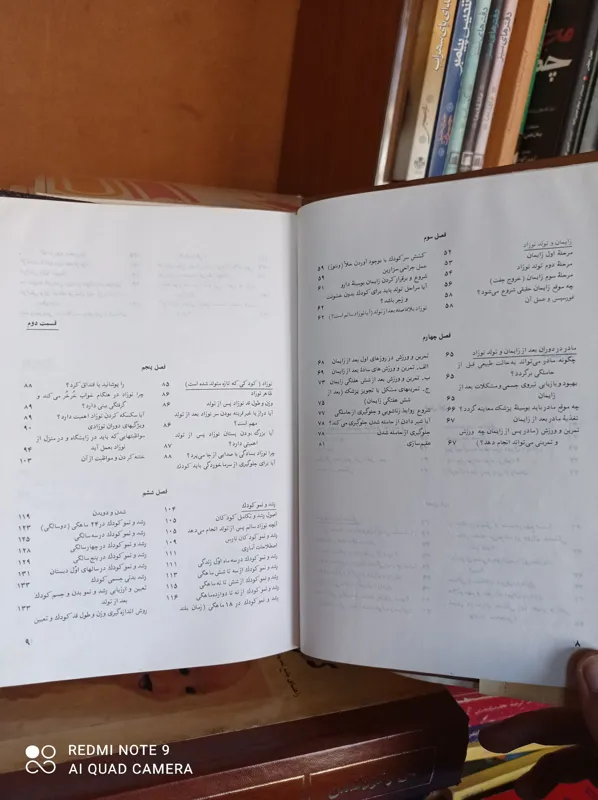 فصل سوم
زایمان و تولد نوزاد
مرحلهٔ اول زایمان ۵۲
مرحلهٔ دوم تولد نوزاد ۵۳
مرحلهٔ سوم زایمان (خروج جفت) ۵۴
چه موقع زایمان حقیقی شروع می‌شود؟ ۵۸
فورسپس و عمل آن ۵۸
کشش سر کودك با بوجود آوردن خلأ (وتوز) ۵۹
عمل جراحی سزارین ۵۹
شروع و برقرار کردن زایمان بوسیلهٔ دارو ۶۱
آیا مراحل تولد باید برای کودك بدون خشونت
و زجر باشد؟
نوزاد بلافاصله بعد از تولد را با نوزاد سالم است؟) ۶۲
فصل چهارم
مادر در دوران بعد از زایمان و تولد نوزاد ۶۵
چگونه مادر می‌تواند بحالت طبیعی قبل از
حاملگی برگردد؟ ۶۵
بهبود و بازیابی نیروی جسمی و مشکلات بعد از
زایمان ۶۵
چه موقع مادر باید بوسیلهٔ پزشك معاینه گردد؟ ۶۶
تغذیهٔ مادر بعد از زایمان ۶۷
تمرین و ورزش (مادر پس از زایمان چه ورزش
و تمرینی می‌تواند انجام دهد؟) ۶۷
تمرین و ورزش در روزهای اول بعد از زایمان ۶۸
الف. تمرین و ورزش های سادهٔ بعد از زایمان ۶۹
ب. تمرین و ورزش بعد از شش هفتگی زایمان ۷۲
ج. تمرینهای مشکل با تجویز پزشك (بعد از
شش هفتگی زایمان) ۷۳
شروع روابط زناشویی و جلوگیری از حاملگی ۷۵
آیا شیر دادن از حامله شدن جلوگیری می‌کند؟ ۷۸
جلوگیری از حامله شدن ۷۸
عقیم‌سازی ۸۱
۸
قسمت دوم
فصل پنجم
نوزاد (کودکی که تازه متولد شده است) ۸۵
ظاهر نوزاد ۸۶
وزن و طول قد نوزاد پس از تولد ۸۶
آیا دراز یا غیرقرینه بودن سر نوزاد بعد از تولد
مهم است؟ ۸۶
آیا بزرگ بودن پستان نوزاد پس از تولد
اهمیتی دارد؟ ۸۷
چرا نوزاد بسادگی با صدایی از جا می‌پرد؟ ۸۷
آیا برای جلوگیری از سرما خوردگی باید کودك
را پوشانید، یا قنداق کرد؟ ۸۸
چرا نوزاد در هنگام خواب خُرخُر می‌کند و
گرفتگی بینی دارد؟ ۸۹
آیا سکسکه کردن نوزاد اهمیت دارد؟ ۸۹
ویژگیهای دوران نوزادی ۹۰
مواظبتهایی که باید در زایشگاه و در منزل از
نوزاد بعمل آید ۹۴
ختنه کردن و مواظبت از آن ۱۰۳
فصل ششم
رشد و نمو کودك ۱۰۴
اصول رشد و تکامل کودکان ۱۰۵
آنچه نوزاد سالم پس از تولد انجام می‌دهد ۱۰۵
رشد و نمو کودکان نارس ۱۰۹
اصطلاحات آماری ۱۱۱
رشد و نمو کودك در سه ماه اوّل زندگی ۱۱۱
رشد و نمو کودك از سه تا شش ماهگی ۱۱۳
رشد و نمو کودك از شش تا نه ماهگی ۱۱۵
رشد و نمو کودك از نه تا دوازده ماهگی ۱۱۶
رشد و نمو کودك در ۱۸ ماهگی (زمان بلند
شدن و دویدن ۱۱۹
رشد و نمو کودك در ۲۴ ماهگی (دو سالگی) ۱۲۳
رشد و نمو کودك در سه سالگی ۱۲۵
رشد و نمو کودك در چهار سالگی ۱۲۸
رشد و نمو کودك در پنج سالگی ۱۲۹
رشد و نمو کودك در سالهای اوّل دبستان ۱۳۱
رشد بدنی جسمی کودك ۱۳۳
تعیین و ارزیابی رشد و نمو بدن و جسم کودك
بعد از تولد ۱۳۳
روش اندازه‌گیری وزن و طول قد کودك و تعیین
۹
REDMI NOTE 9
AI QUAD CAMERA